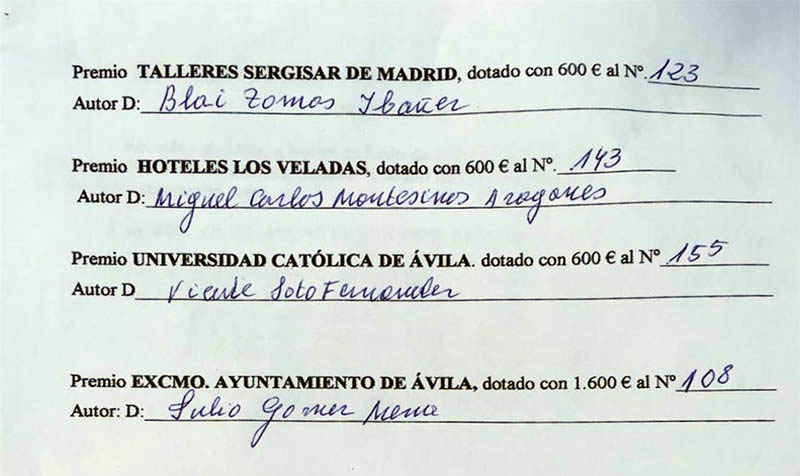 Premio TALLERES SERGISAR DE MADRID, dotado con 600 € al Nº. 123
Autor D: Blai Tomas Ibañez
Premio HOTELES LOS VELADAS, dotado con 600 € al Nº. 143
Autor D: Miguel Carlos Montesinos Aragones
Premio UNIVERSIDAD CATÓLICA DE ÁVILA. dotado con 600 € al Nº 155
Autor D Vicente Soto Fernandez
Premio EXCMO. AYUNTAMIENTO DE ÁVILA, dotado con 1.600 € al Nº 108
Autor: D: Julio Gomez Mena